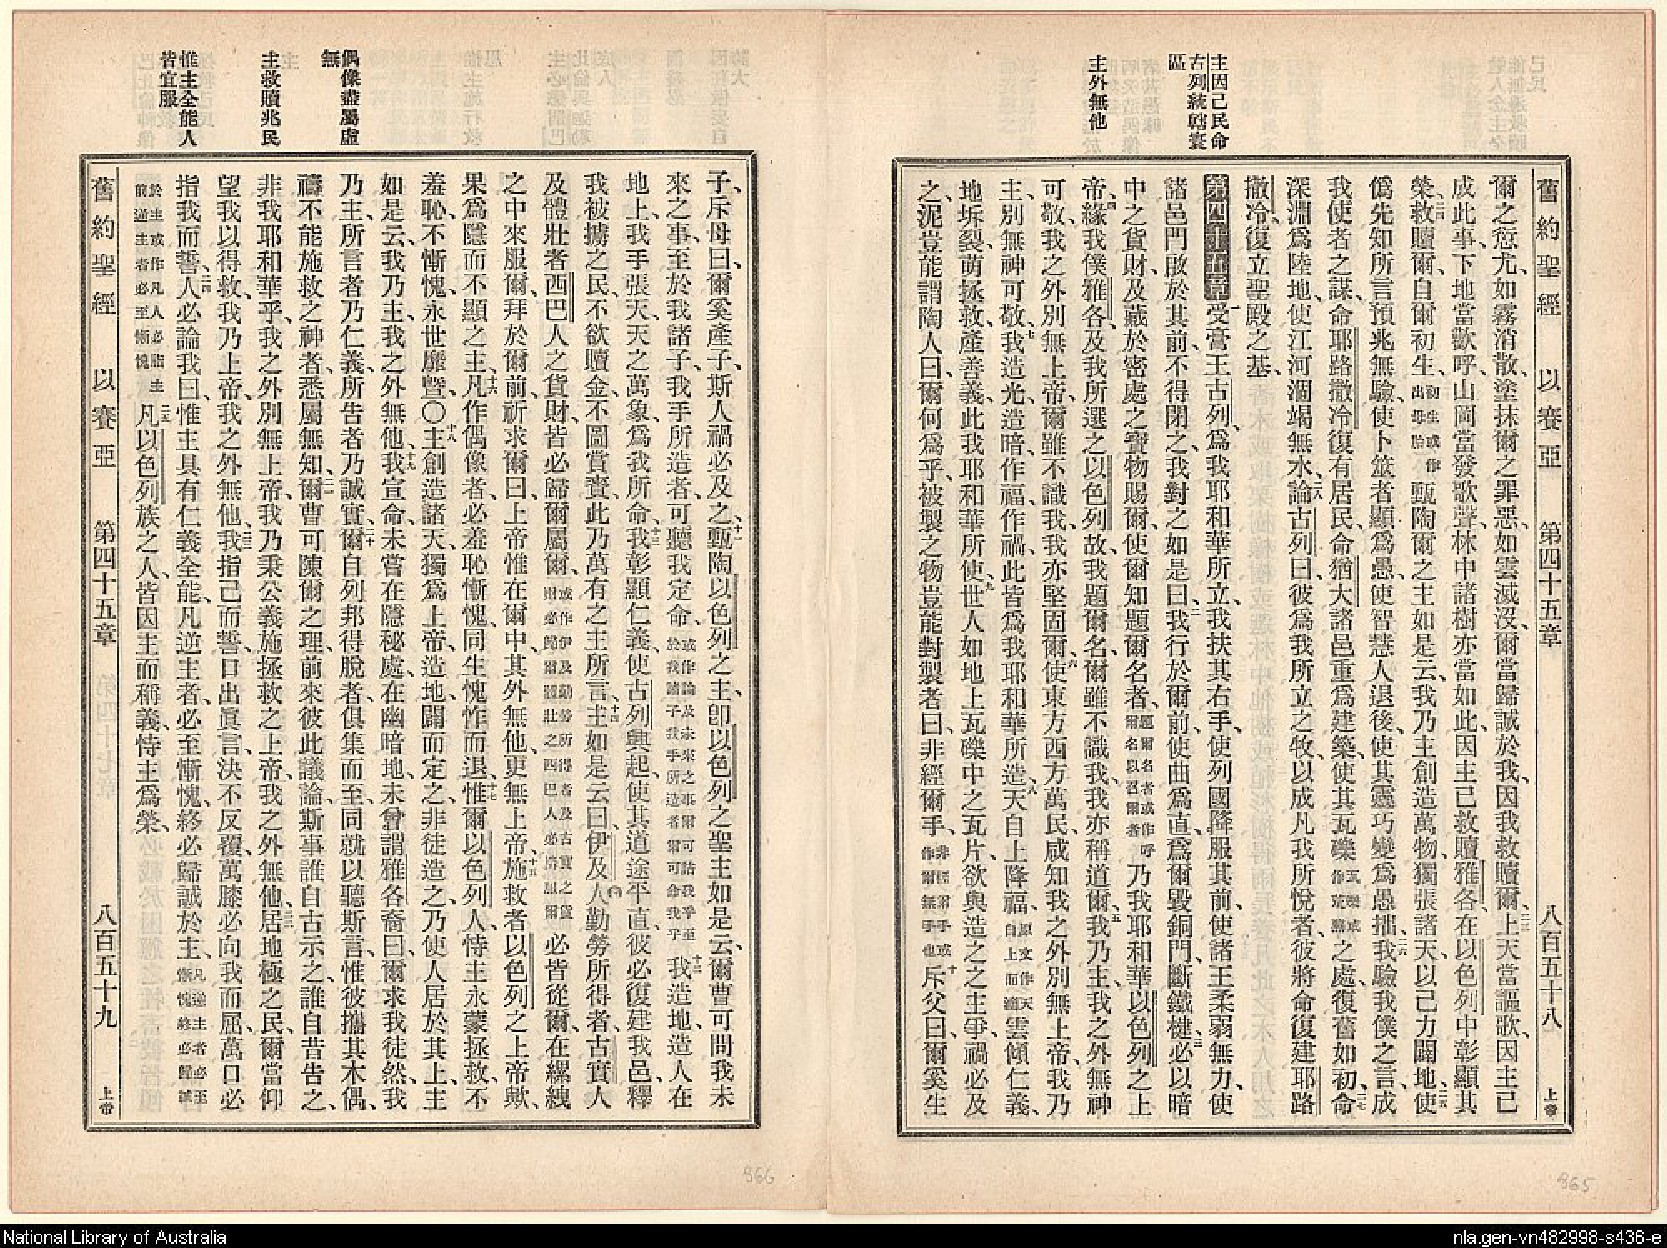 主因己民命
古列統轄寰
區
主外無他
舊約聖經 以賽亞 第四十五章 八百五十八 上帝
爾之愆尤、如霧消散、塗抹爾之罪惡、如雲滅沒、爾當歸誠於我、因我救贖爾、二三上天當謳歌、因主已
成此事、下地當歡呼、山岡當發歌聲、林中諸樹亦當如此、因主已救贖雅各、在以色列中彰顯其
榮、二四救贖爾、自爾初生初生或作出母胎甄陶爾之主如是云、我乃主、創造萬物、獨張諸天、以己力闢地、二五使
僞先知所言預兆無驗、使卜筮者顯爲愚、使智慧人退後、使其靈巧變爲愚拙、二六我驗我僕之言、成
我使者之謀、命耶路撒冷復有居民、命猶大諸邑重爲建築、使其瓦礫瓦礫或作荒蕪之處復舊如初、二七命
深淵爲陸地、使江河涸竭無水、二八論古列曰、彼爲我所立之牧、以成凡我所悅者、彼將命復建耶路
撒冷、復立聖殿之基、
第四十五章 一受膏王古列、爲我耶和華所立、我扶其右手、使列國降服其前、使諸王柔弱無力、使
諸邑門啟於其前、不得閉之、我對之如是曰、二我行於爾前、使曲爲直、爲爾毀銅門、斷鐵楗、三必以暗
中之貨財、及藏於密處之寶物賜爾、使爾知題爾名者、題爾名者或作呼爾名以召爾者乃我耶和華以色列之上
帝、四緣我僕雅各、及我所選之以色列故、我題爾名、爾雖不識我、我亦稱道爾、五我乃主、我之外無神
可敬、我之外別無上帝、爾雖不識我、我亦堅固爾、六使東方西方萬民、咸知我之外別無上帝、我乃
主、別無神可敬、七我造光造暗、作福作禍、此皆爲我耶和華所造、八天自上降福、原文作天自上而滴雲傾仁義、
地坼裂、萌拯救、產善義、此我耶和華所使、九世人如地上瓦礫中之瓦片、欲與造之之主爭、禍必及
之、泥豈能謂陶人曰、爾何爲乎、被製之物豈能對製者曰、非經爾手、非經爾手或作爾無手也十斥父曰、爾奚生
偶像盡屬虛
無
主救贖兆民
惟主全能人
皆宜服
子、斥母曰、爾奚產子、斯人禍必及之、十一甄陶以色列之主、卽以色列之聖主如是云、爾曹可問我未
來之事、至於我諸子、我手所造者、可聽我定命、或作論及未來之事爾可詰我乎至於我諸子我手所造者爾可命我乎十二我造地、造人在
地上、我手張天、天之萬象爲我所命、十三我彰顯仁義、使古列興起、使其道途平直、彼必復建我邑、釋
我被擄之民、不欲贖金、不圖賞賚、此乃萬有之主所言、十四主如是云、曰伊及人勤勞所得者、古實人
及體壯者西巴人之貨財、皆必歸爾屬爾、或作伊及勤勞所得者及古實之貨爾必歸爾體壯之西巴人必將屬爾必皆從爾、在縲絏
之中來服爾、拜於爾前、祈求爾曰、上帝惟在爾中、其外無他、更無上帝、十五施救者以色列之上帝歟、
果爲隱而不顯之主、十六凡作偶像者、必羞恥慚愧、同生愧怍而退、十七惟爾以色列人恃主、永蒙拯救、不
羞恥、不慚愧、永世靡曁、〇十八主創造諸天、獨爲上帝、造地闢而定之、非徒造之、乃使人居於其上、主
如是云、我乃主、我之外無他、十九我宣命未嘗在隱秘處、在幽暗地、未曾謂雅各裔曰、爾求我徒然、我
乃主、所言者乃仁義、所告者乃誠實、二十爾自列邦得脫者、俱集而至、同就以聽斯言、惟彼攜其木偶、
禱不能施救之神者、悉屬無知、二一爾曹可陳爾之理、前來彼此議論、斯事誰自古示之、誰自昔告之、
非我耶和華乎、我之外別無上帝、我乃秉公義施拯救之上帝、我之外無他、二二居地極之民、爾當仰
望我以得救、我乃上帝、我之外無他、二三我指己而誓、口出眞言、決不反覆、萬膝必向我而屈、萬口必
指我而誓、二四人必論我曰、惟主具有仁義全能、凡逆主者、必至慚愧、終必歸誠於主、凡逆主者必至慚愧終必歸誠
於主或作凡人必歸主前逆主者必至慚愧二五凡以色列族之人、皆因主而稱義、恃主爲榮、
舊約聖經 以賽亞 第四十五章 八百五十九 上帝
966
965
National Library of Australia
nla.gen-vn482998-s436-e